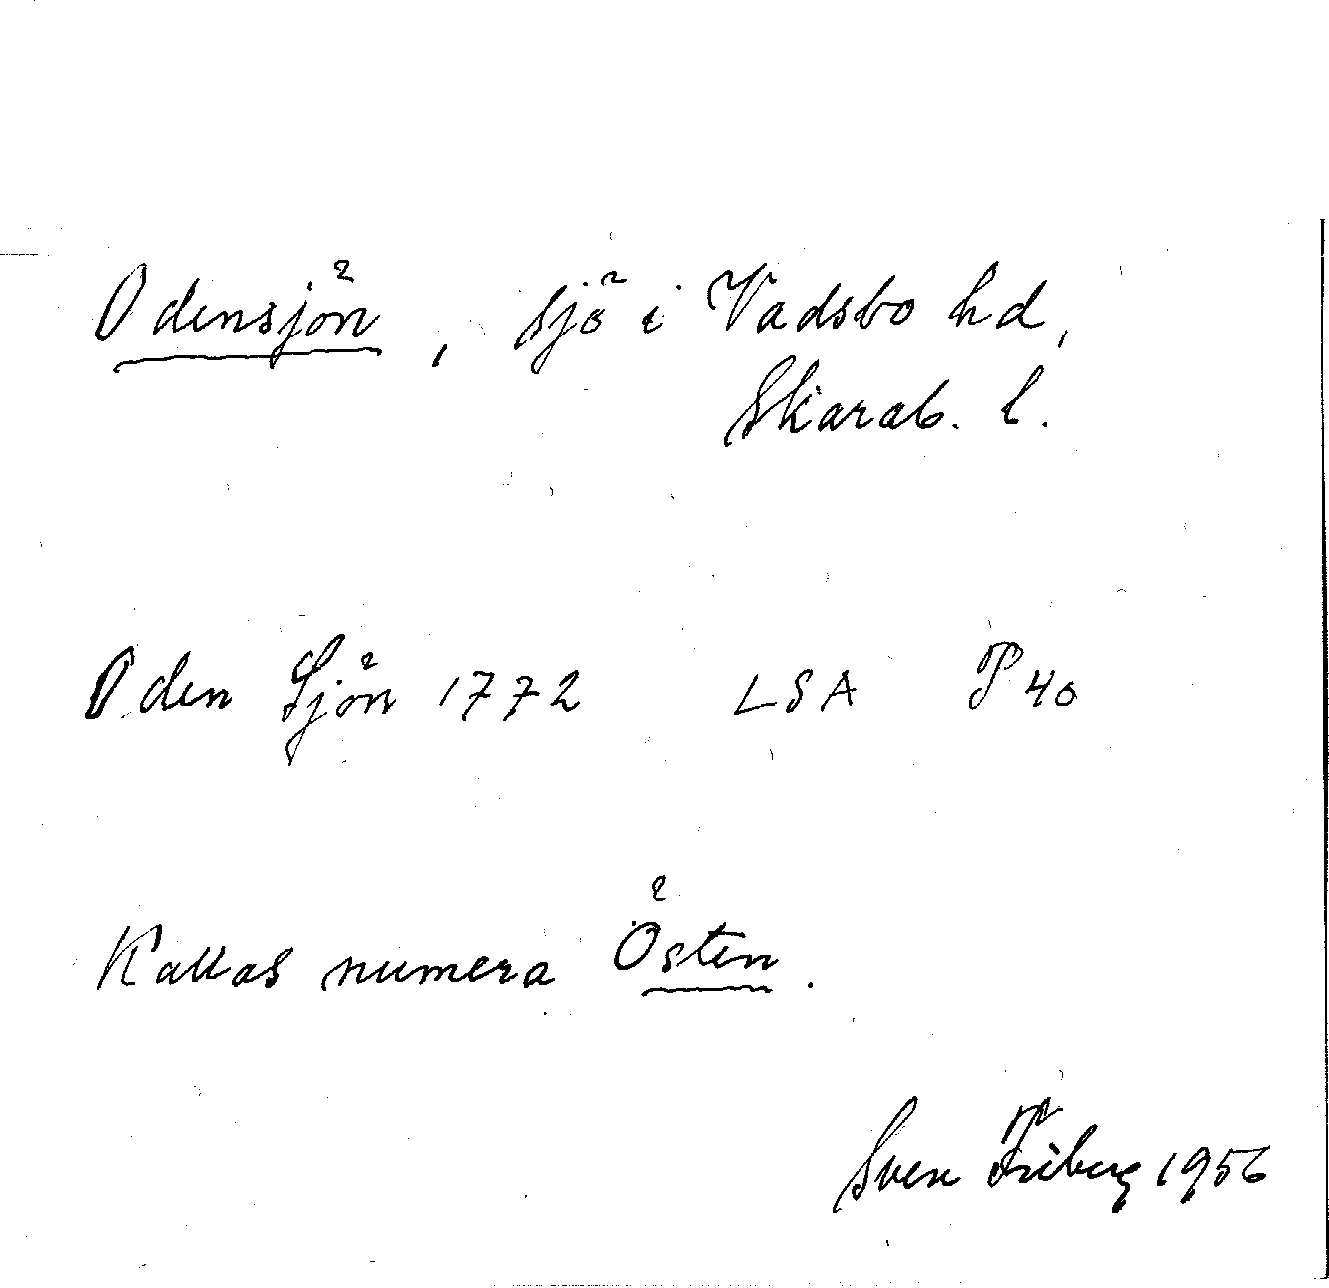 Odensjön, sjö i Vadsbo hd,
Skarab. l.
Oden Sjön 1772 LSA P 40
Kallas numera Östen.
Sven Friberg 1956